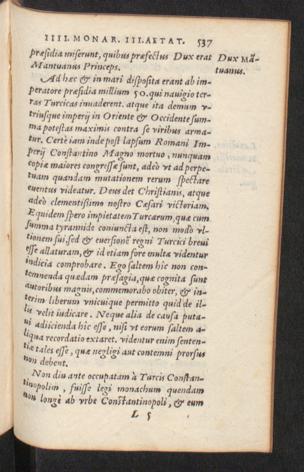 IIII. MONAR. III. AETAT. 537
præsidia miserunt, quibus præfectus Dux erat
Mantuanus Princeps.
Dux Mã-
tuanus.
Ad hæc & in mari disposita erant ab im-
peratore præsidia millium 50. qui nauigio ter-
ras Turcicas inuaderent. atque ita demum v-
triusque imperij in Oriente & Occidente sum-
ma potestas maximis contra se viribus arma-
tur. Certè iam inde post lapsum Romani Im-
perij Constantino Magno mortuo, nunquam
copiæ maiores congressæ sunt, adeò vt ad perpe-
tuam quandam mutationem rerum spectare
euentus videatur. Deus det Christianis, atque
adeò clementissimo nostro Cæsari victoriam,
Equidem spero impietatem Turcarum, quæ cum
summa tyrannide coniuncta est, non modò vl-
tionem sui, sed & euersionẽ regni Turcici breui
esse allaturam, & id etiam fore multa videntur
indicia comprobare. Ego saltem hic non con-
temnenda quædam præsagia, quæ cognita sunt
autoribus magnis, commemorabo obiter, & in-
terim liberum vnicuique permitto quid de il-
lis velit iudicare. Neque alia de causa puta-
ui adiicienda hic esse, nisi vt eorum saltem a-
liqua recordatio extaret. videntur enim senten-
tiæ tales esse, quæ negligi aut contemni prorsus
non debent.
Non diu ante occupatam à Turcis Constan-
tinopolim, fuisse legi monachum quendam
non longè ab vrbe Constantinopoli, & eum
L 5